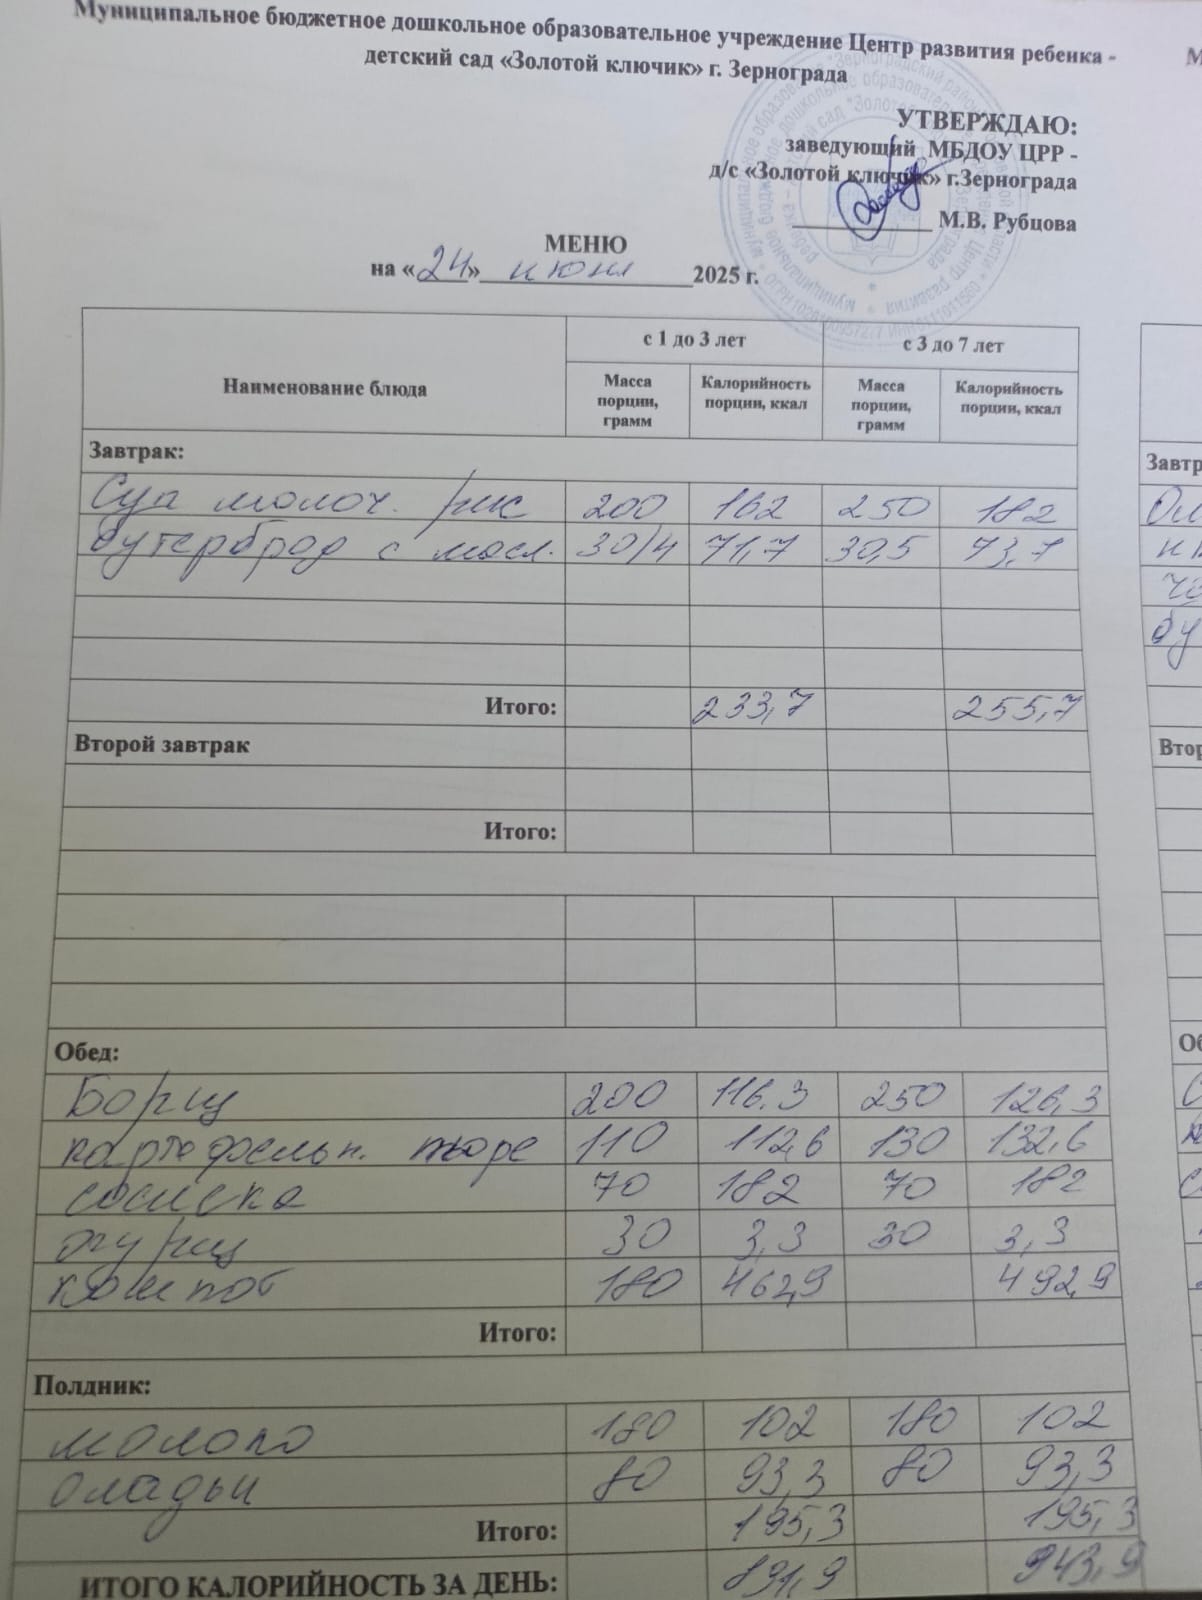 Муниципальное бюджетное дошкольное образовательное учреждение Центр развития ребенка -
детский сад «Золотой ключик» г. Зернограда
УТВЕРЖДАЮ:
заведующий МБДОУ ЦРР -
д/с «Золотой ключик» г.Зернограда
М.В. Рубцова
МЕНЮ
на «24» июня 2025 г.
Наименование блюда
с 1 до 3 лет
с 3 до 7 лет
Масса порции, грамм
Калорийность порции, ккал
Масса порции, грамм
Калорийность порции, ккал
Завтрак:
Суп молоч. рис 200 162 250 182
бутерброд с масл. 30/4 71,7 30,5 73,7
Итого: 233,7 255,7
Второй завтрак
Итого:
Обед:
Борщ 200 116.3 250 126,3
картофельн. пюре 110 112,6 130 132,6
сосиска 70 182 70 182
огурец 30 3,3 30 3,3
компот 180 462,9 492,9
Итого:
Полдник:
молоко 180 102 180 102
оладьи 80 93,3 80 93,3
Итого: 195,3 195,3
ИТОГО КАЛОРИЙНОСТЬ ЗА ДЕНЬ: 891,9 943,9
Завтр
Втор
Об